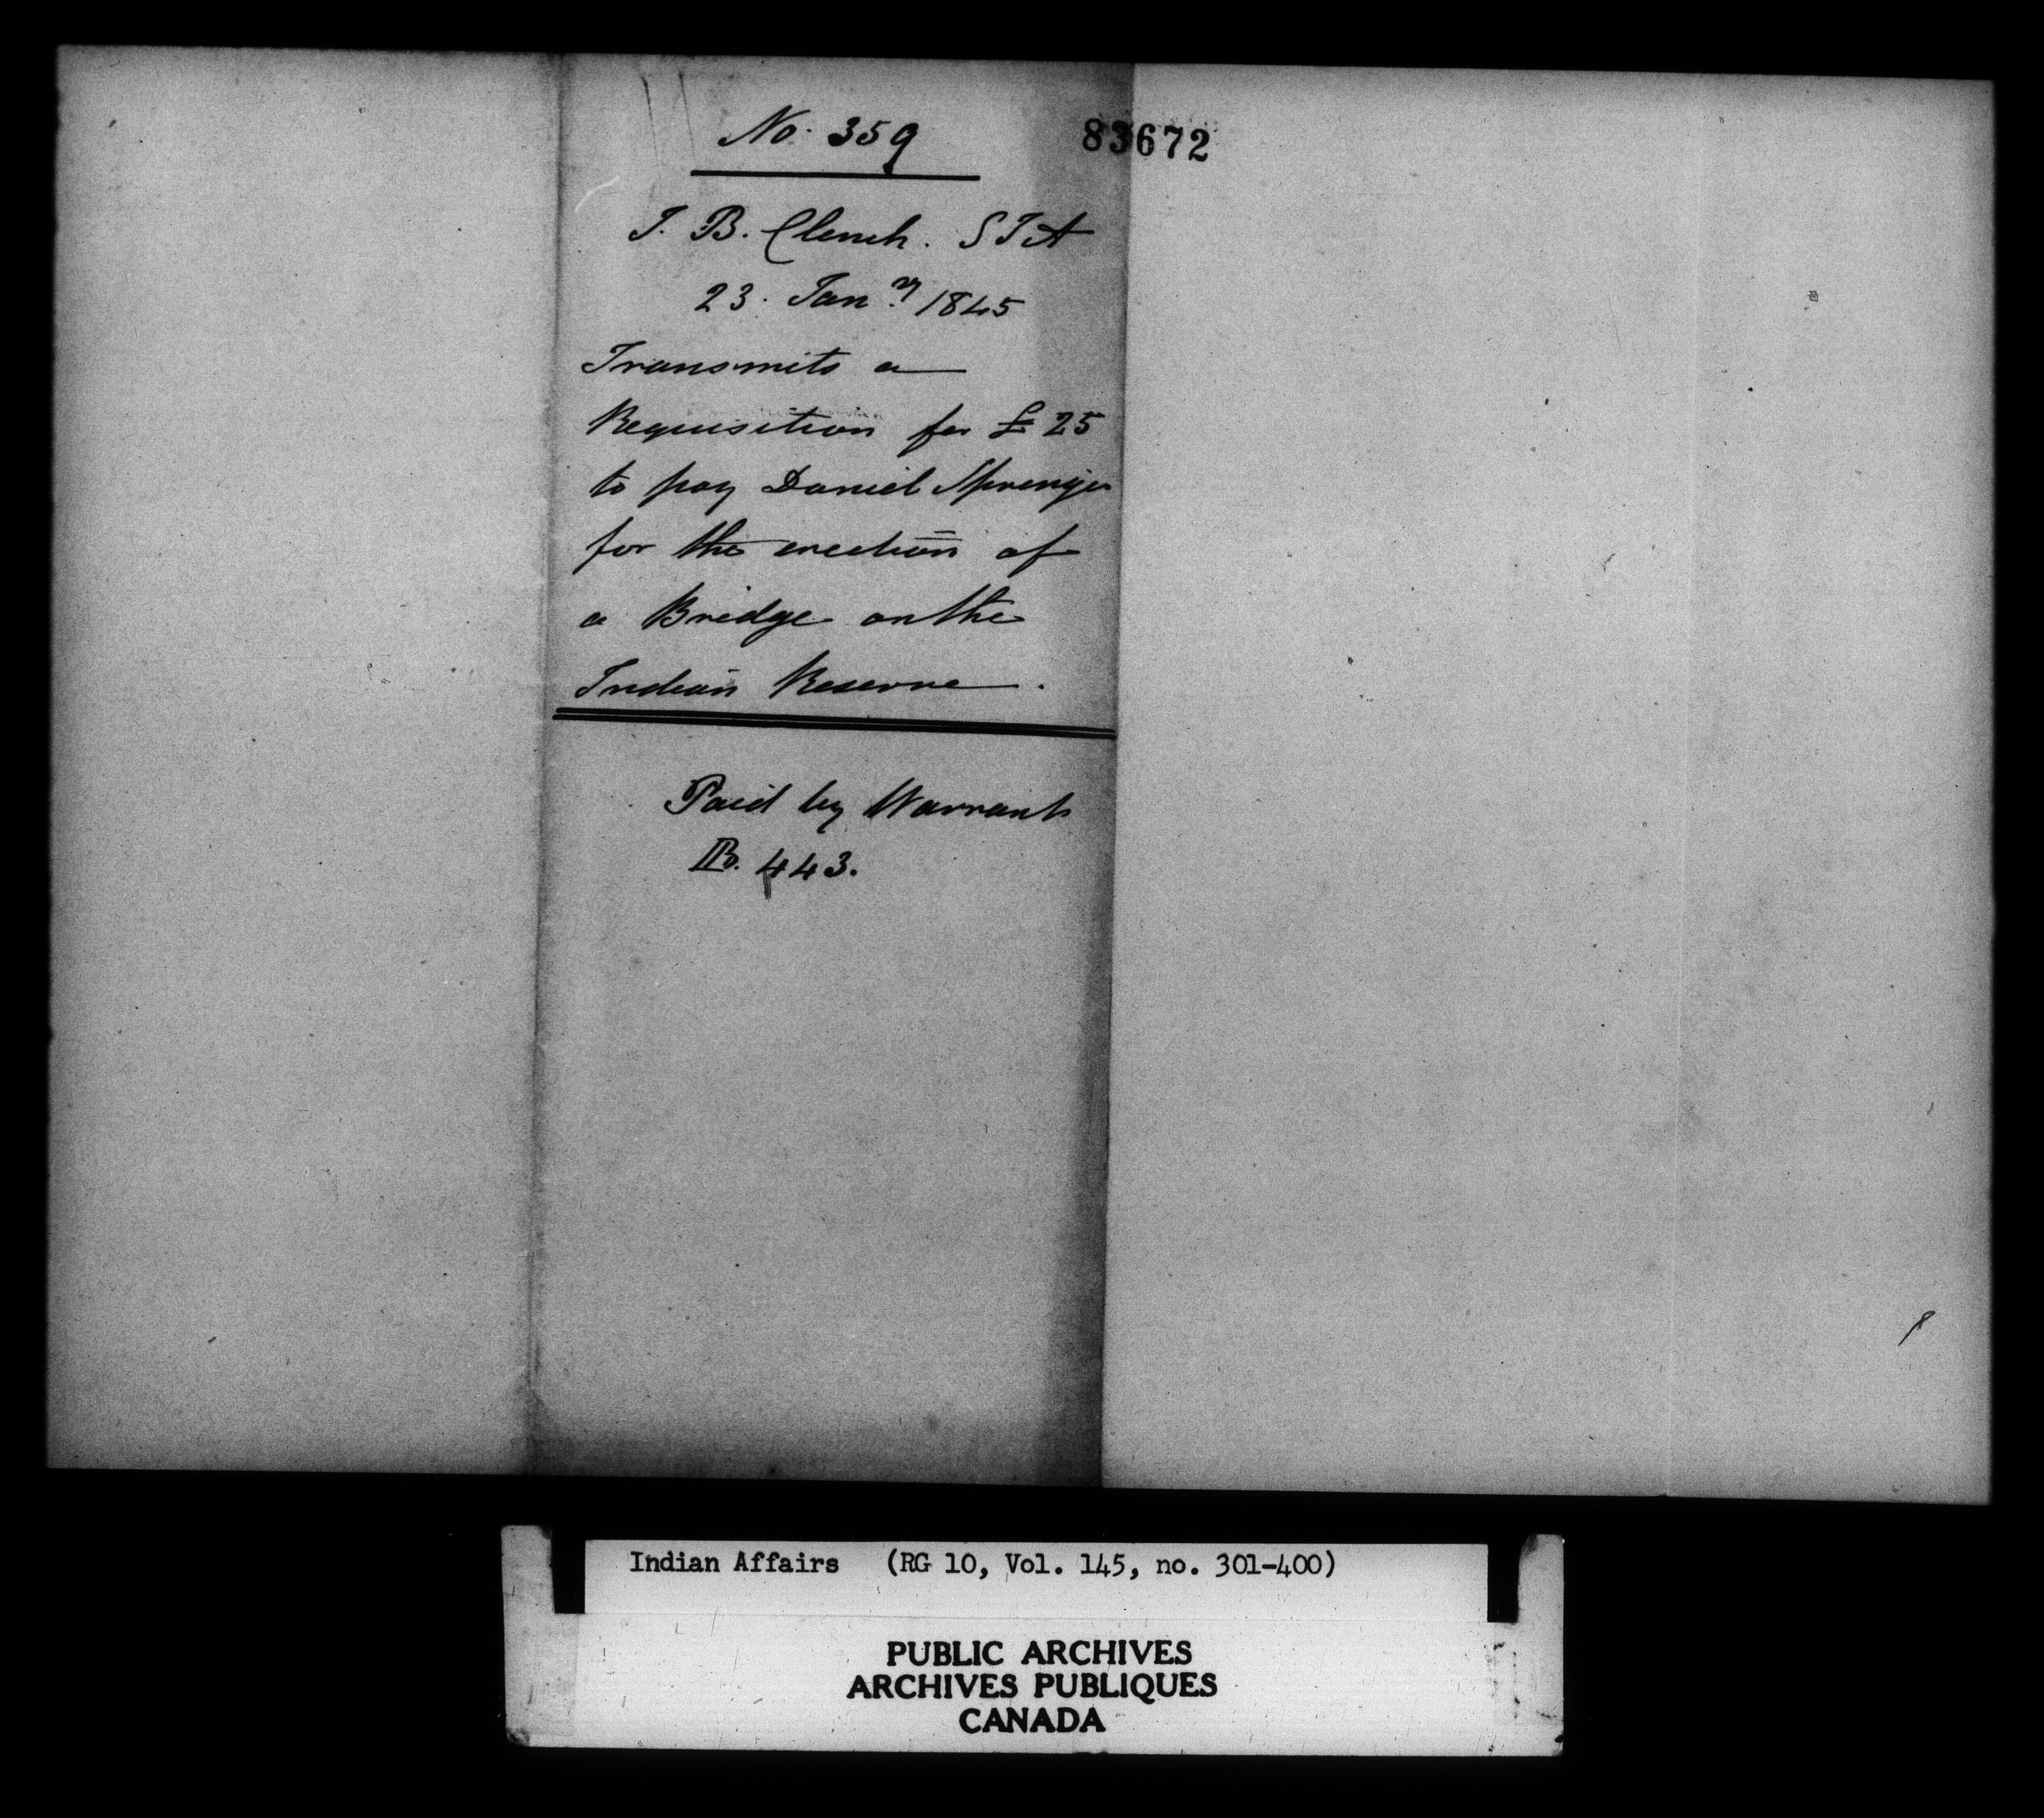 No. 359
83672
J. B. Clench. S I A
23. Jany. 1845
Transmits a
Requisition for £25
to pay Daniel Springer
for the erection of
a Bridge on the
Indian Reserve.
Paid by Warrant
B. 443.
Indian Affairs (RG 10, Vol. 145, no. 301-400)
PUBLIC ARCHIVES
ARCHIVES PUBLIQUES
CANADA